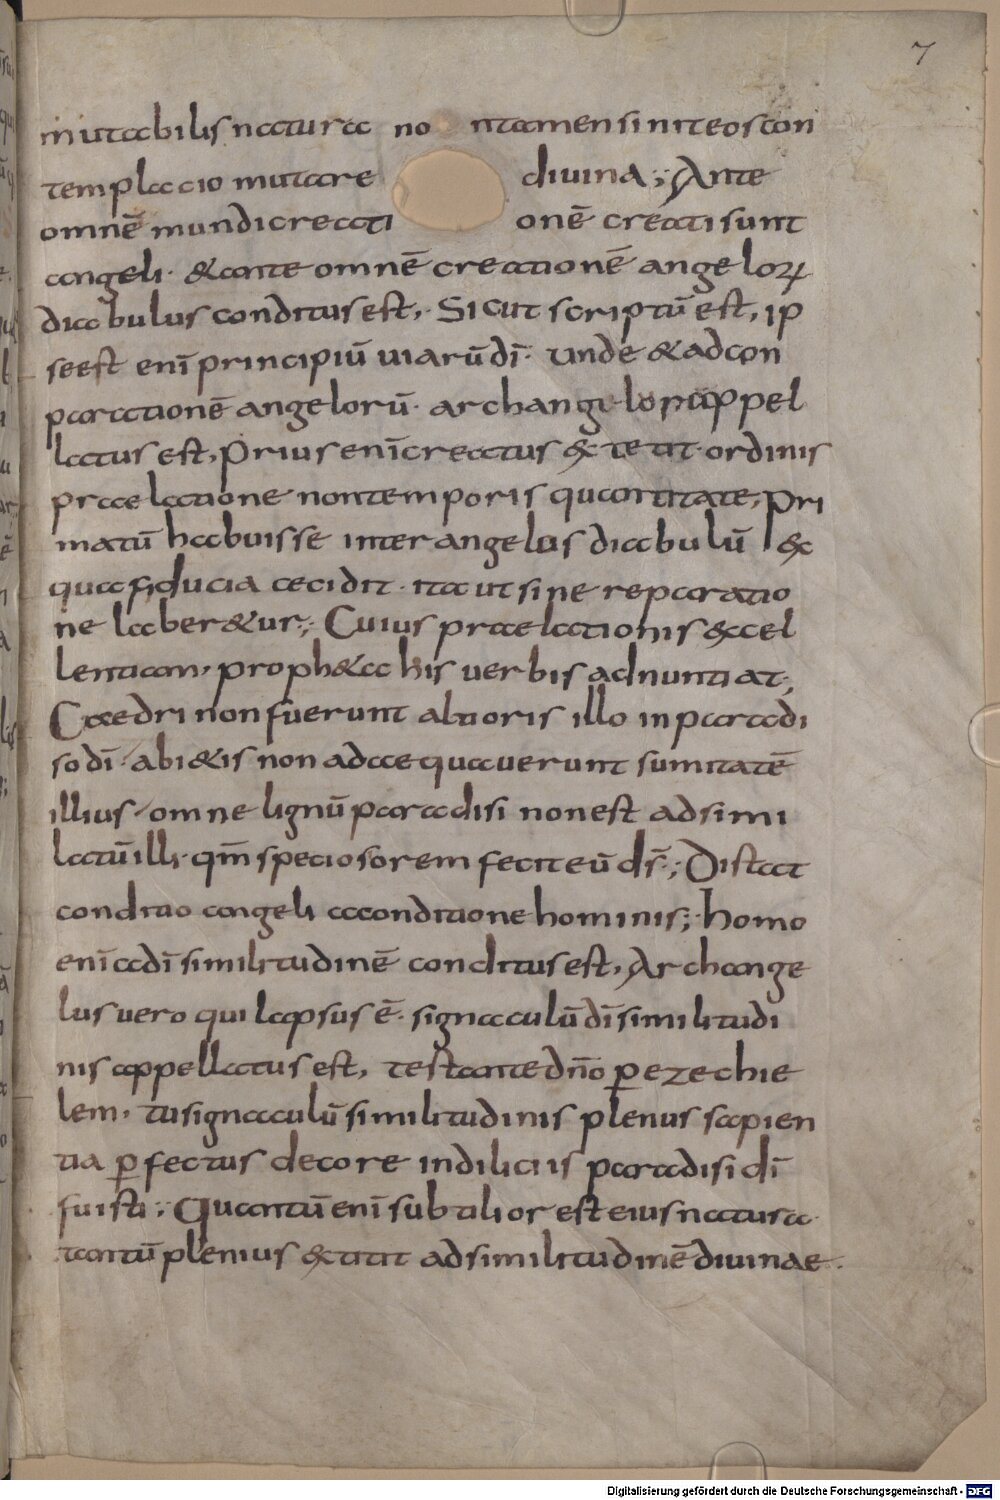 7
mutabilis natura no ntamen sinit eos con
templacio mutare divina; Ante
omnē mundi creati onē creati sunt
angeli· & ante omnē creationē angeloꝝ
diabulus conditus est, Sicut scriptū est, ip
se est enī principiū uiarū dī· unde & ad con
parationē angelorū· archangelus appel
latus est, Prius enī creatus extetit· ordinis
praelatione non temporis quantitate, Pri
matū habuisse inter angelus diabulū ex
qua fiducia cecidit· ita ut sine reparatio
ne laberetur; Cuius praelationis excel
lentiam, propheta his uerbis adnuntiat;
Caedri non fuerunt altioris illo in paradi
so dī abietis non adaequauerunt sumitatē
illius omne lignū paradisi non est adsimi
latū illi· qm̄ speciosorem fecit eū ds̄·; Distat
conditio angeli a conditione hominis; homo
enī ad dī similitudinē conditus est, Archange
lus uero qui lapsus ē· signaculū dī similitudi
nis appellatus est, testante dn̄o ꝑ ezechie
lem, tu signaculū similitudinis plenus sapien
tia ꝑfectus decore in diliciis paradisi dī
fuisti; Quantū enī subtilior est eius natura
tantū plenius extitit ad similitudinē diuinae·
Digitalisierung gefördert durch die Deutsche Forschungsgemeinschaft - DFG